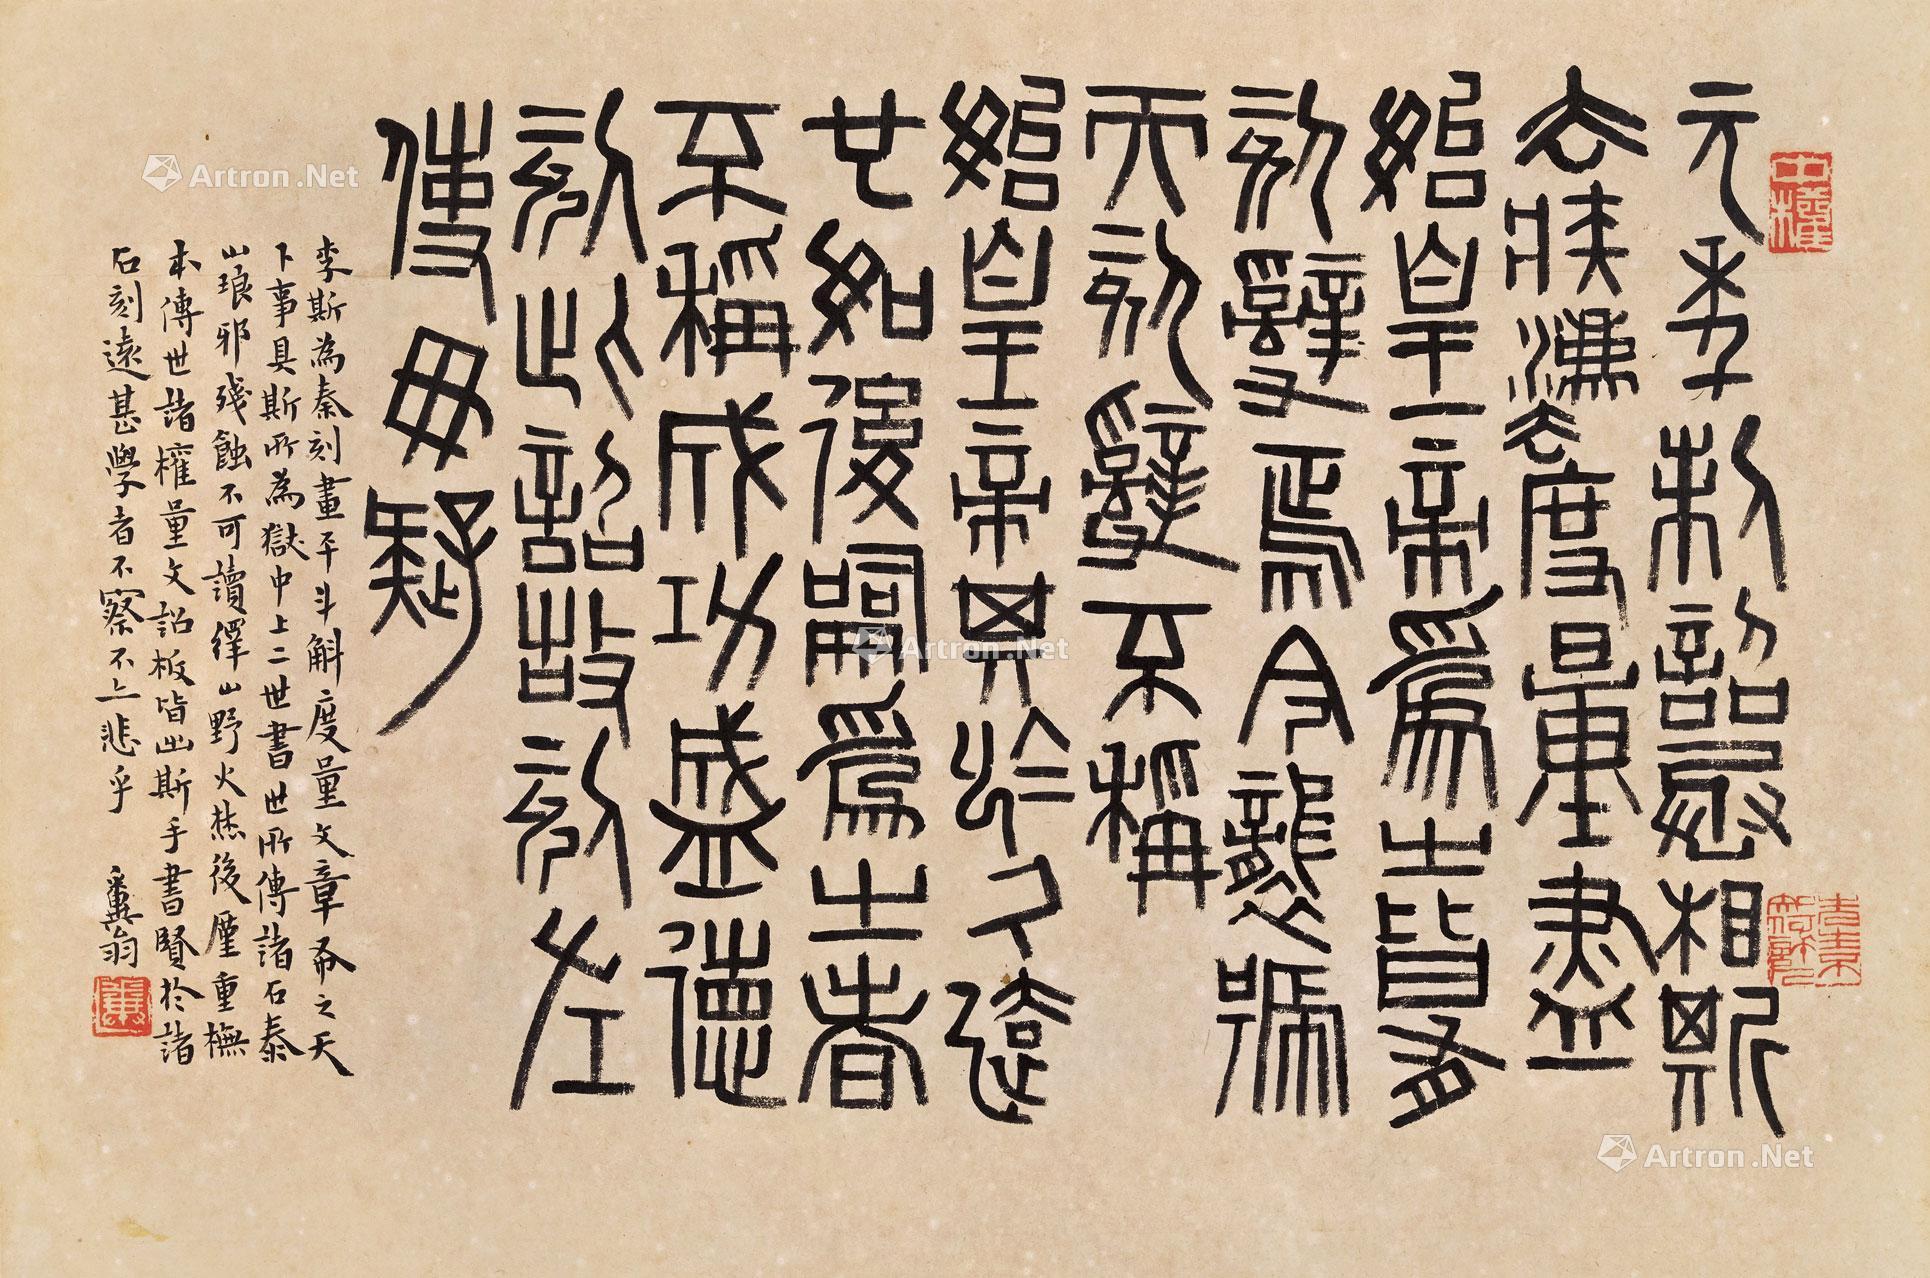 元年制詔丞相斯
去疾灋度量盡
始皇帝爲之皆有
刻辭焉今襲號
而刻辭不稱
始皇帝其於久遠
世如後嗣爲之者
不稱成功盛德
刻此詔故刻左
使毋疑
李斯為秦刻畫平斗斛度量文章布之天
下事具斯所為獄中上二世書世所傳諸石泰
山琅邪殘蝕不可讀繹山野火焚後廑重橅
本傳世諸權量文詔板皆出斯手書賢於諸
石刻遠甚學者不察不亦悲乎 糞翁
Artron.Net
Artron.Net
Artron.Net